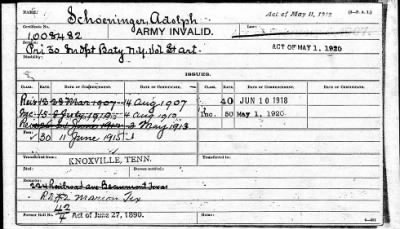 Schoeninger, Adolph Act of May 11, 1912
1008482 ARMY INVALID.
Pri 30 Indpt Baty N.Y. Vol St art. ACT OF MAY 1, 1920
ISSUES.
CLASS. RATE. DATE OF COMMENCEMENT. DATE OF CERTIFICATE. CLASS. RATE. DATE OF COMMENCEMENT. DATE OF CERTIFICATE.
12 28 Mar 1907 14 Aug 1907 40 JUN 10 1918
Inc. 15 8 July 1910 4 Aug 1910 Inc. 50 MAY 1, 1920.
2 May 1913
30 11 June 1915
Transferred
KNOXVILLE, TENN. Transferred
Remarks:
224 Railroad ave Beaumont Texas
Rt #2 Marion Tex
42/4
Former Roll No. Act of June 27, 1890.